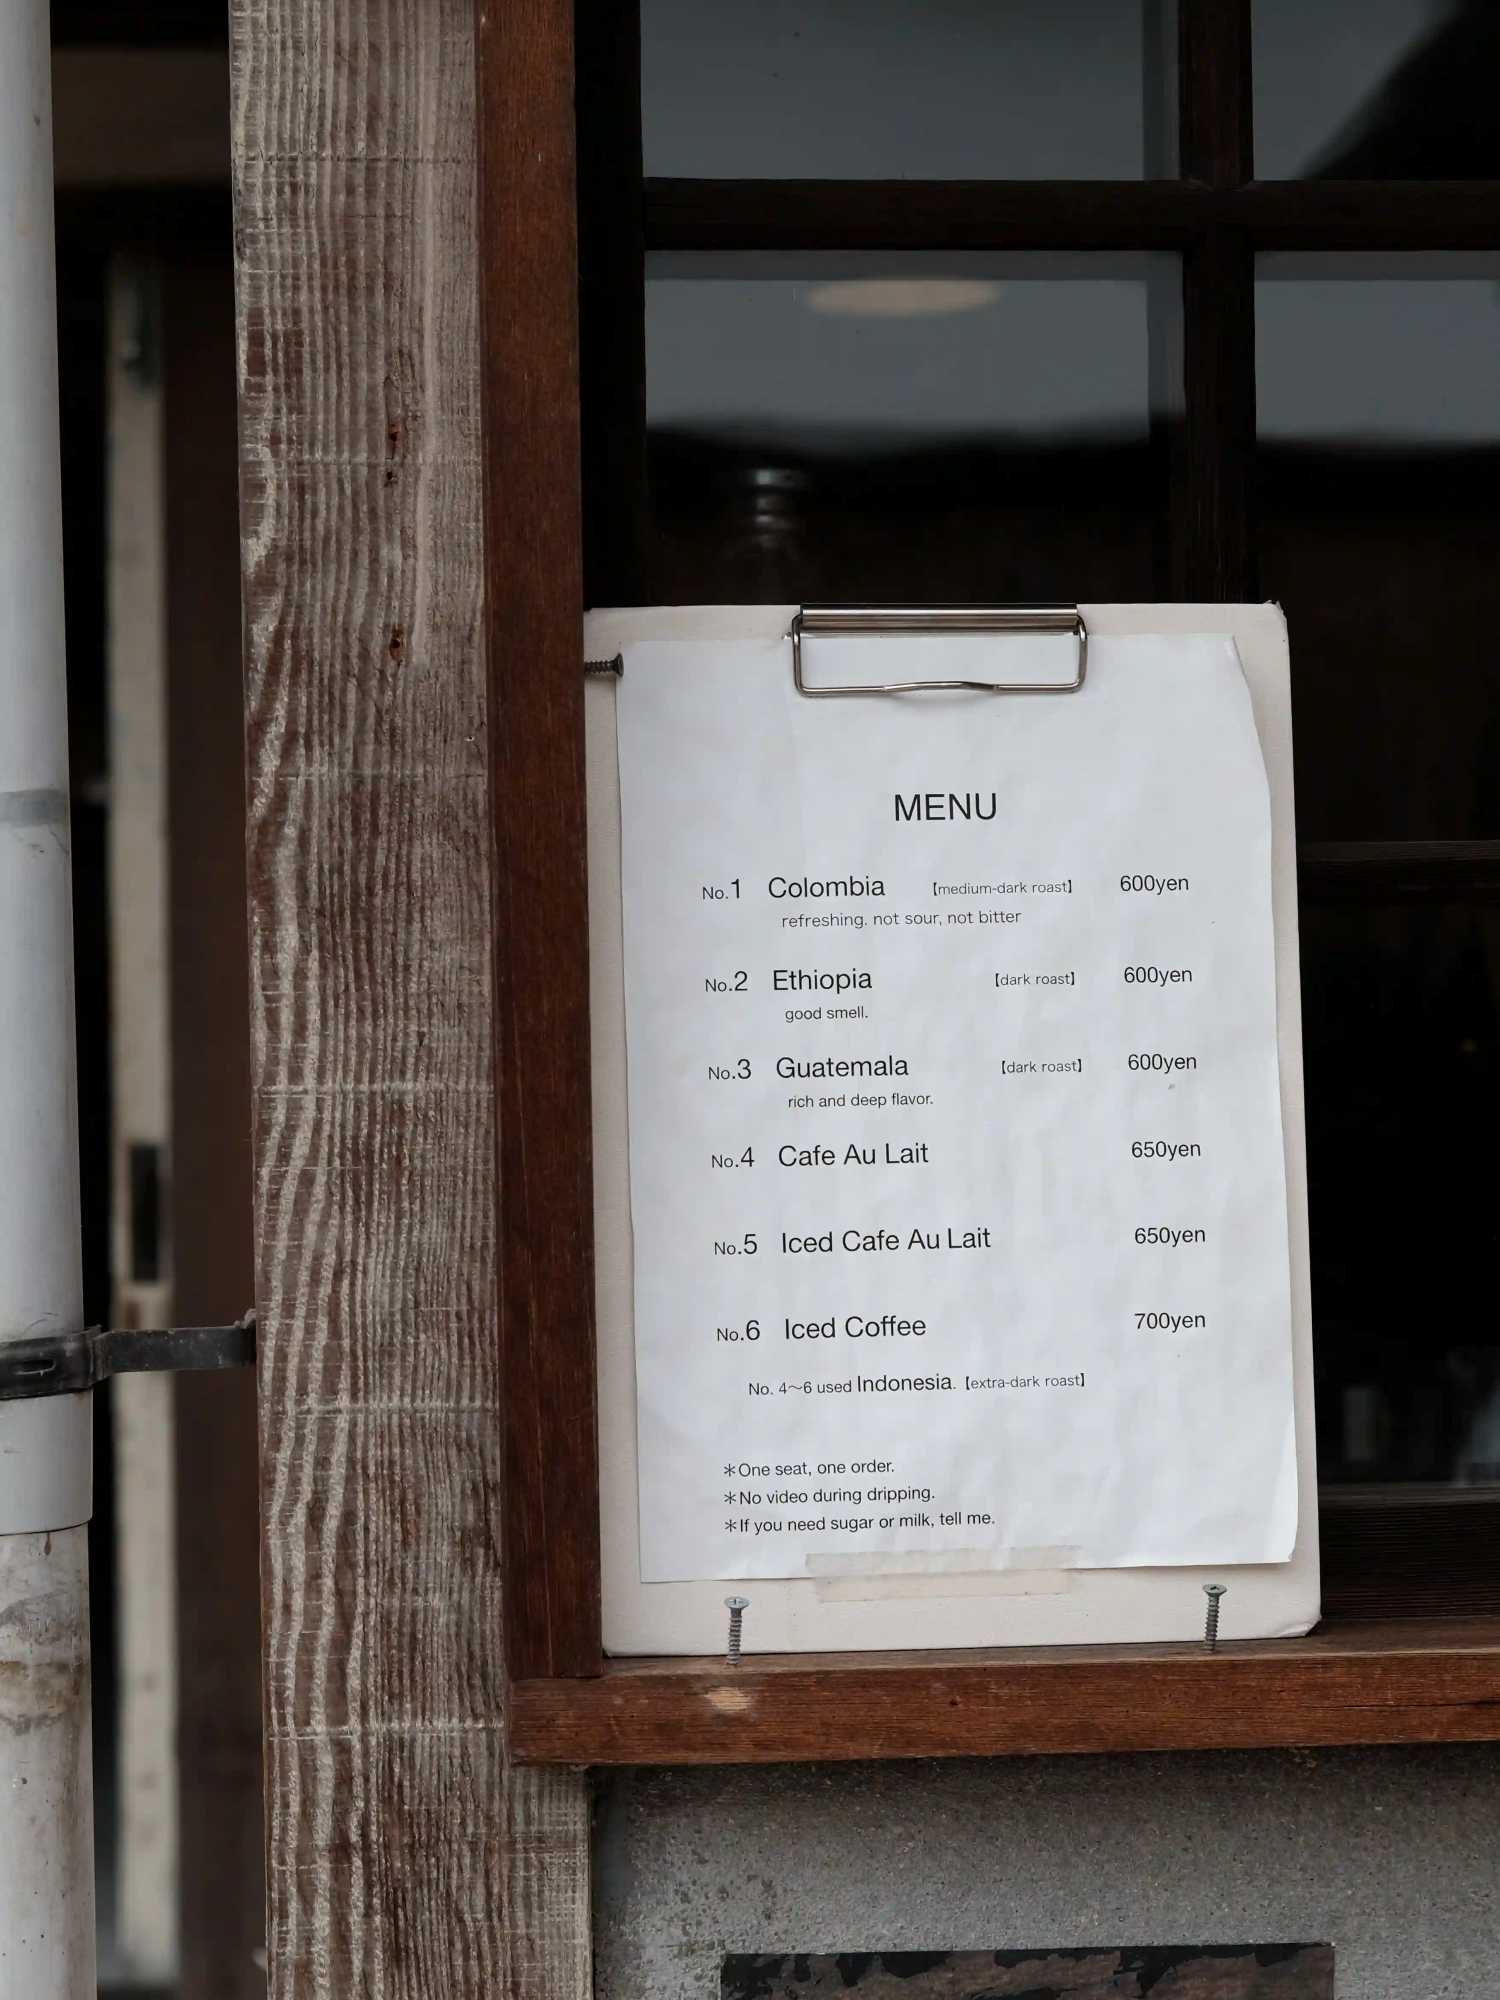 MENU
No.1 Colombia 【medium-dark roast】 600yen
refreshing. not sour, not bitter
No.2 Ethiopia 【dark roast】 600yen
good smell.
No.3 Guatemala 【dark roast】 600yen
rich and deep flavor.
No.4 Cafe Au Lait 650yen
No.5 Iced Cafe Au Lait 650yen
No.6 Iced Coffee 700yen
No. 4～6 used Indonesia.【extra-dark roast】
＊One seat, one order.
＊No video during dripping.
＊If you need sugar or milk, tell me.